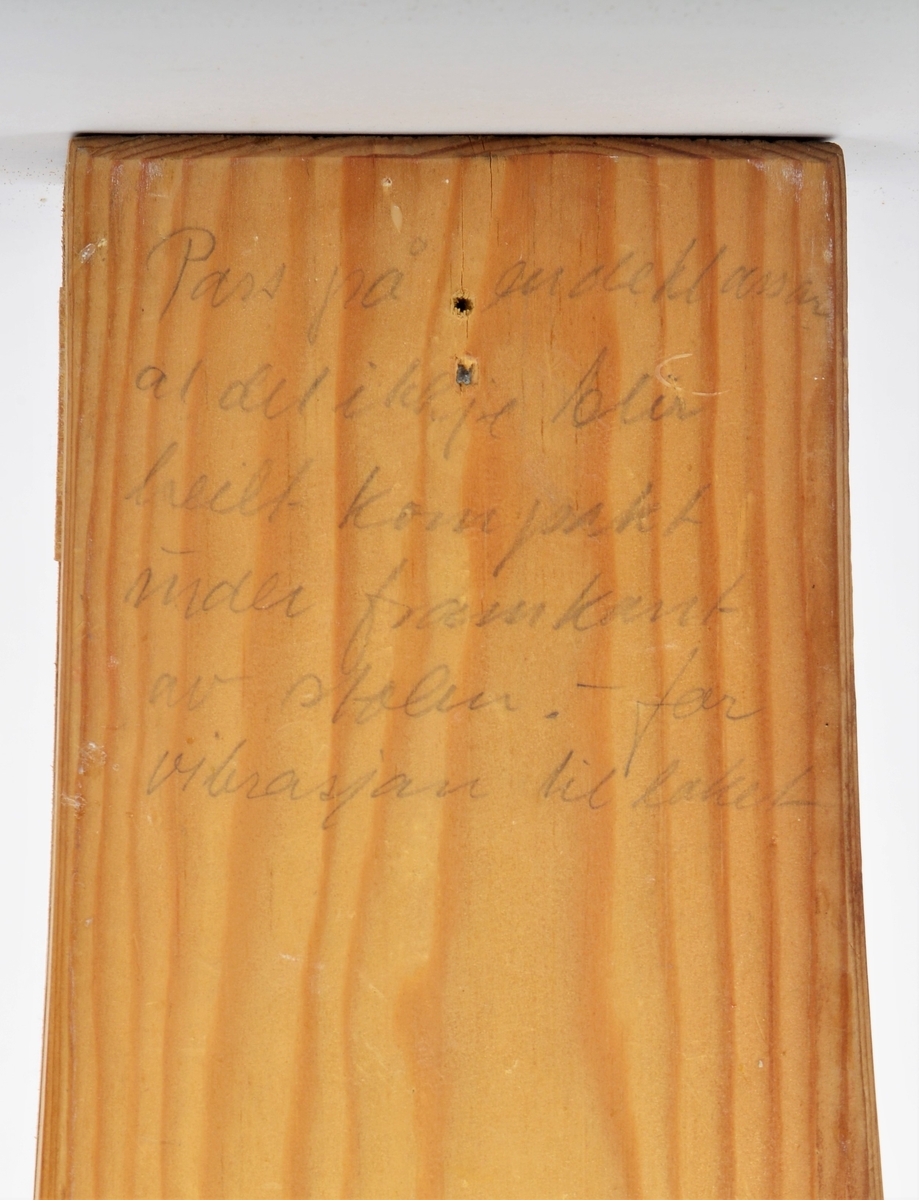 Pass på endeklassan
at det ikkje blir
heilt kompakt
under framkant
av stolen. – for
vibrasjon til lokket